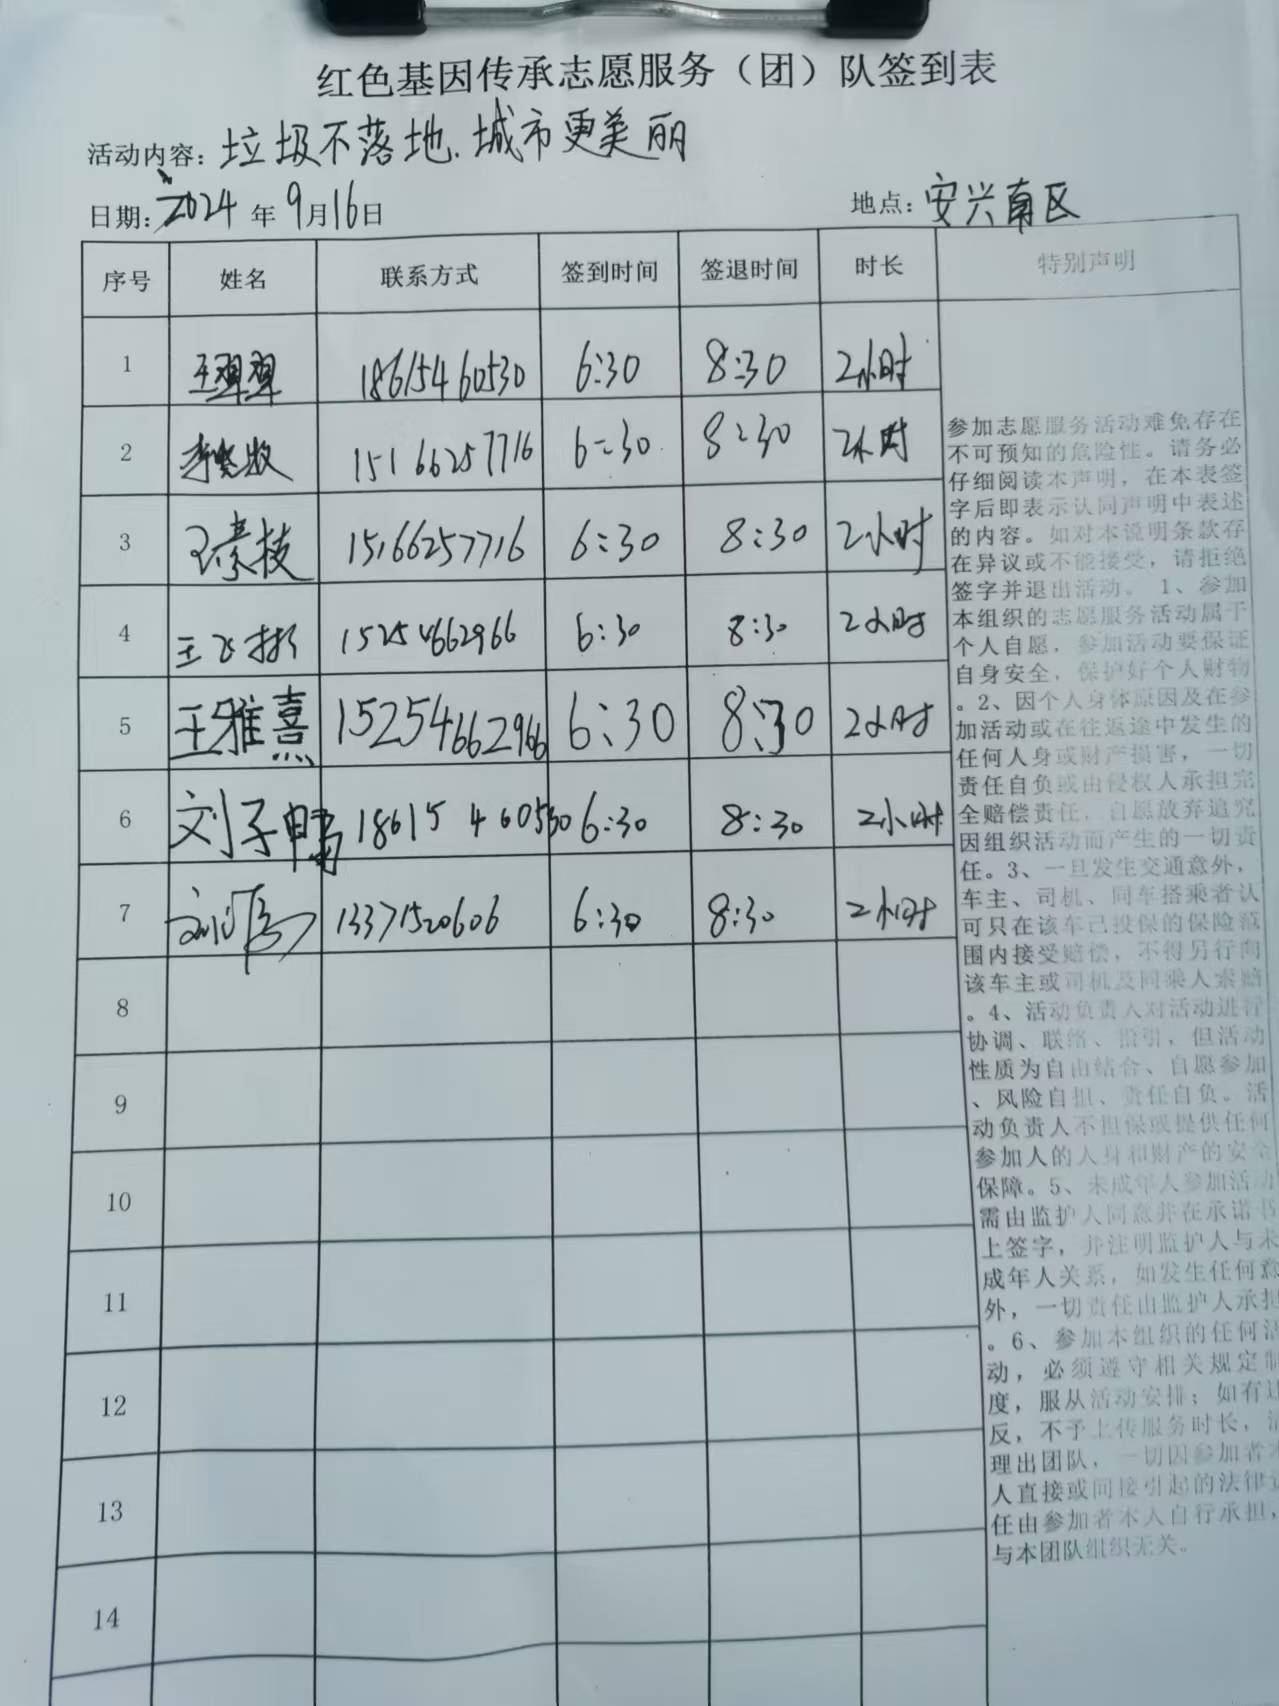 红色基因传承志愿服务（团）队签到表
活动内容：垃圾不落地.城市更美丽
日期：2024年9月16日 地点：安兴南区
序号 姓名 联系方式 签到时间 签退时间 时长 特别声明
1 王翠翠 18615460530 6:30 8:30 2小时
2 15166257716 6:30 8:30 2小时
3 王素枝 15166257716 6:30 8:30 2小时
4 王飞 15254662966 6:30 8:30 2小时
5 王雅熹 15254662966 6:30 8:30 2小时
6 刘子 18615460530 6:30 8:30 2小时
7 刘 13371520606 6:30 8:30 2小时
8
9
10
11
12
13
14
参加志愿服务活动难免存在
不可预知的危险性。请务必
仔细阅读本声明，在本表签
字后即表示认同声明中表述
的内容。如对本说明条款存
在异议或不能接受，请拒绝
签字并退出活动。1、参加
本组织的志愿服务活动属于
个人自愿，参加活动要保证
自身安全，保护好个人财物
。2、因个人身体原因及在参
加活动或在往返途中发生的
任何人身或财产损害，一切
责任自负或由侵权人承担完
全赔偿责任，自愿放弃追究
因组织活动而产生的一切责
任。3、一旦发生交通意外，
车主、司机、同车搭乘者认
可只在该车已投保的保险范
围内接受赔偿，不得另行向
该车主或司机及同乘人索赔
。4、活动负责人对活动进行
协调、联络、指引，但活动
性质为自由结合、自愿参加
、风险自担、责任自负。活
动负责人不担保或提供任何
参加人的人身和财产的安全
保障。5、未成年人参加活动
需由监护人同意并在承诺书
上签字，并注明监护人与未
成年人关系，如发生任何意
外，一切责任由监护人承担
。6、参加本组织的任何活
动，必须遵守相关规定制
度，服从活动安排；如有违
反，不予上传服务时长，清
理出团队，一切因参加者本
人直接或间接引起的法律责
任由参加者本人自行承担，
与本团队组织无关。